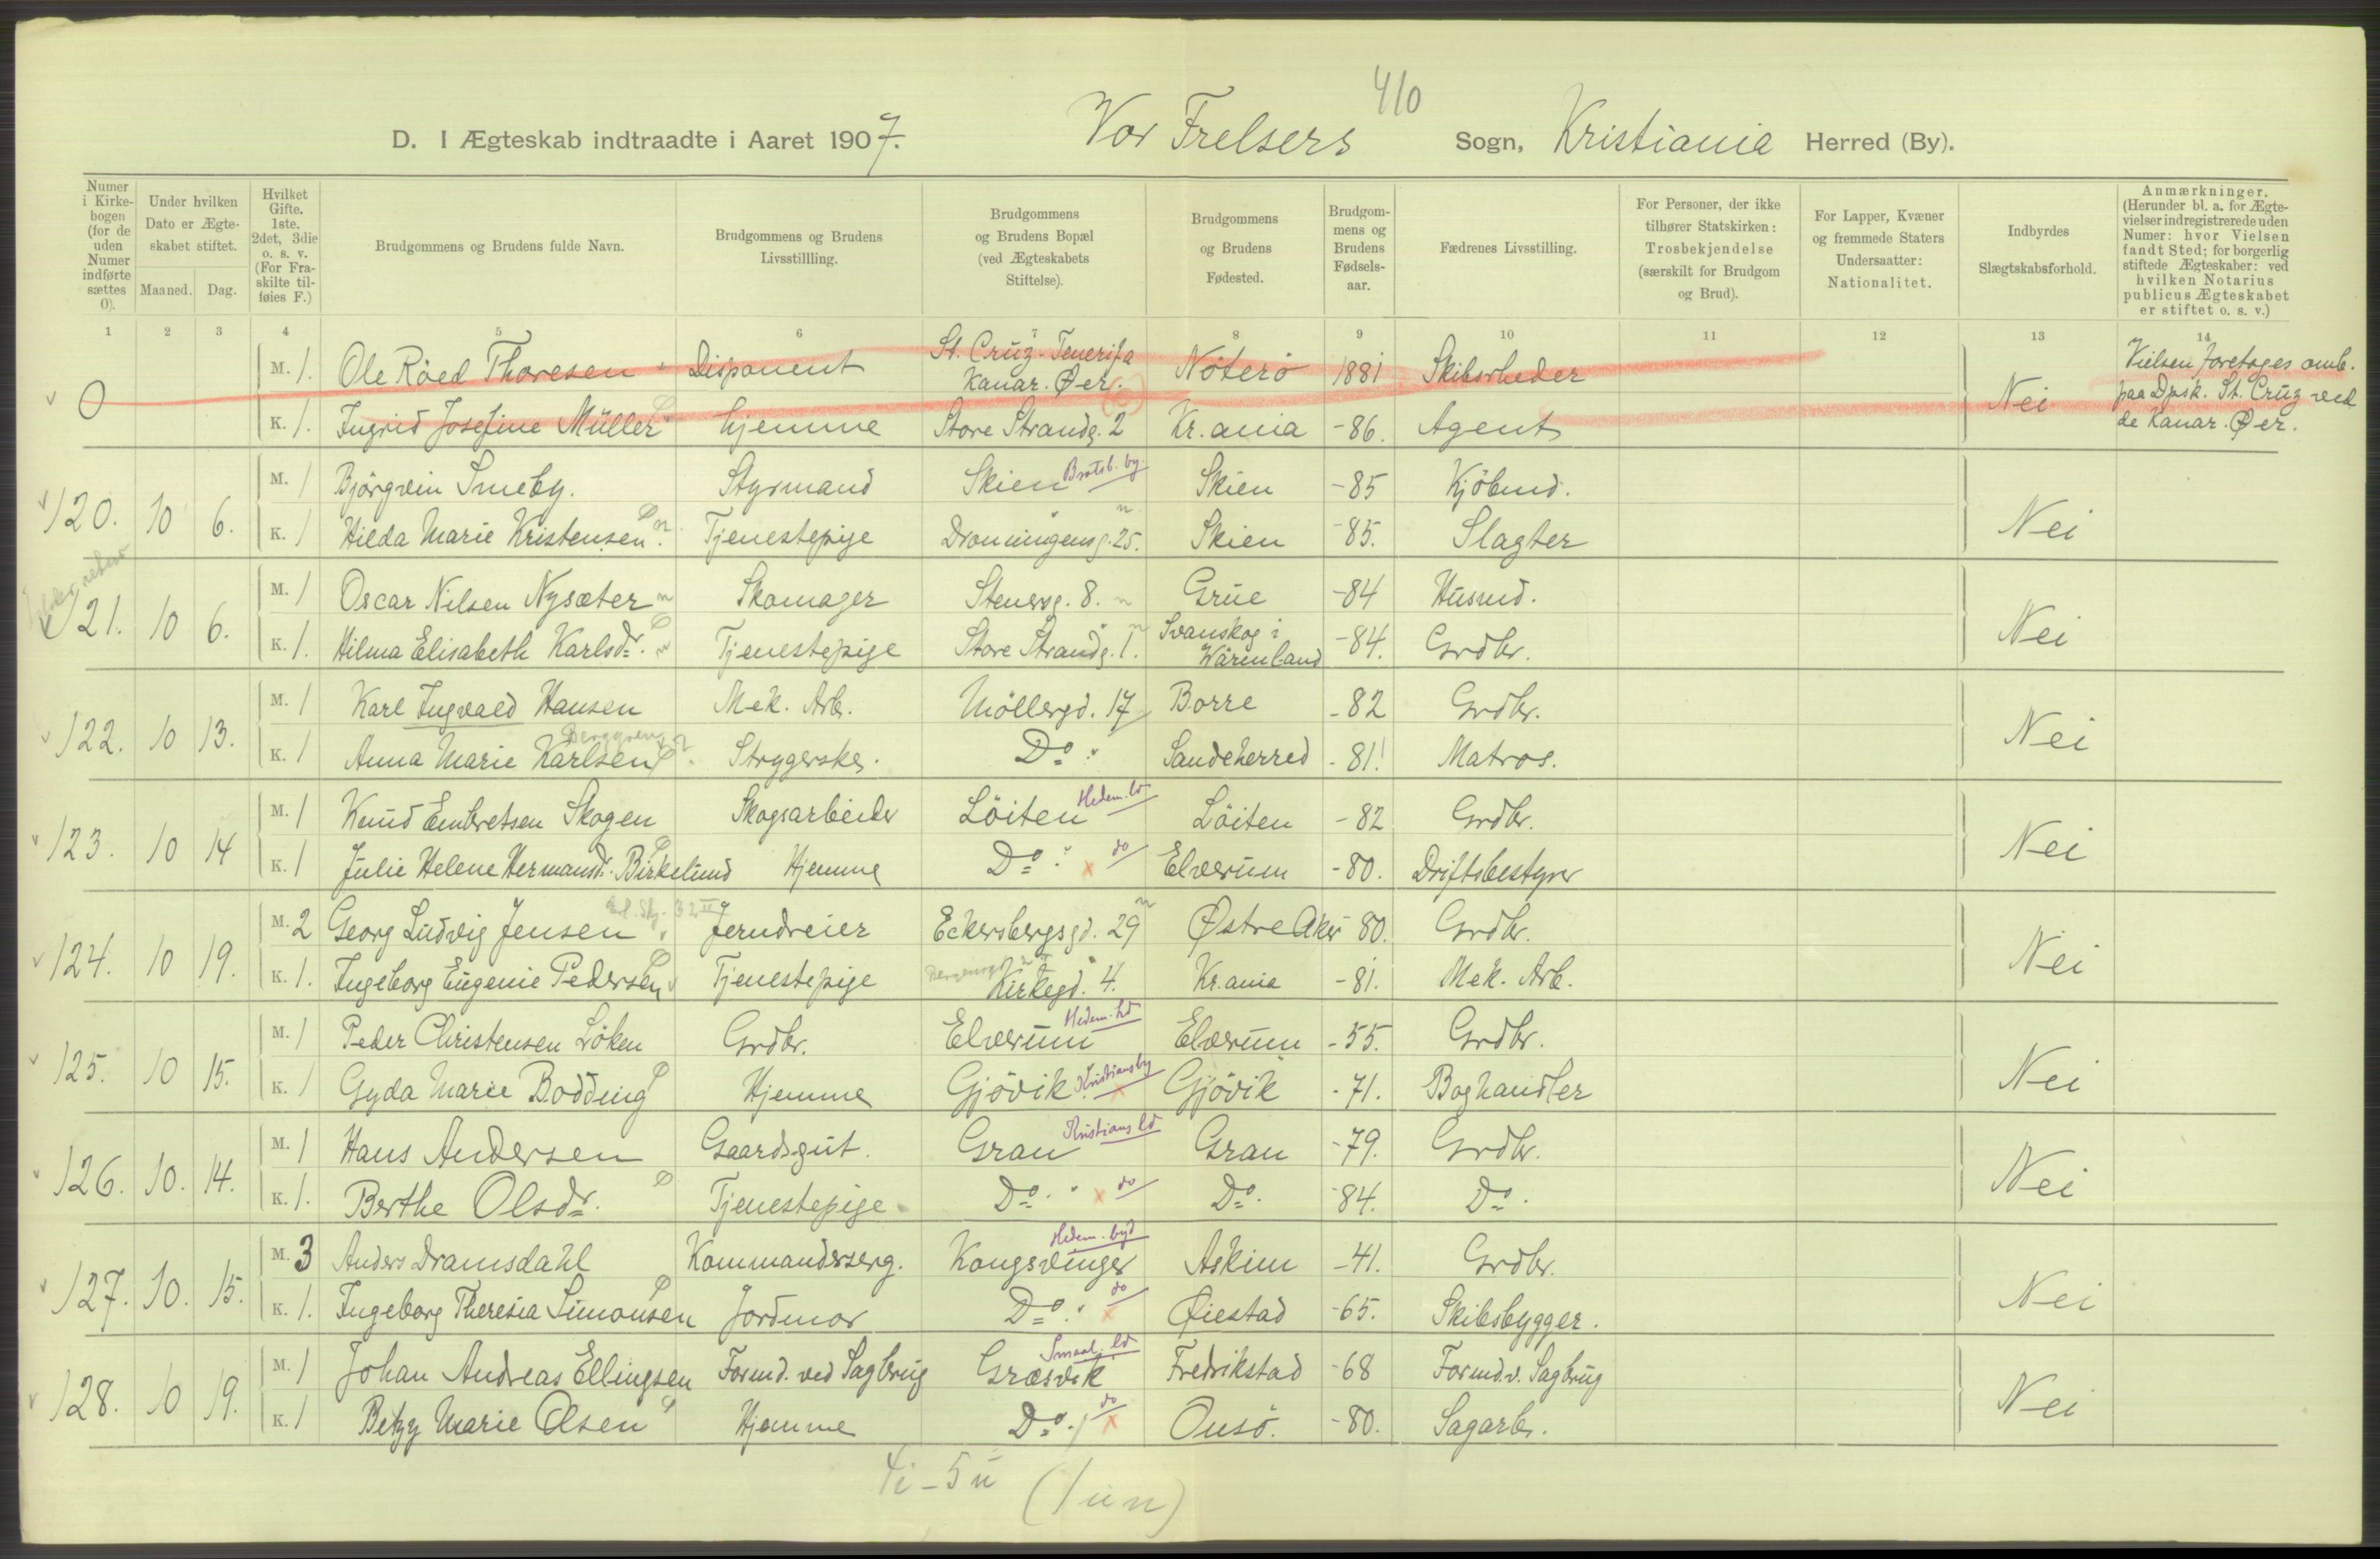 410
D. I Ægteskab indtraadte i Aaret 1907. Vor Frelsers Sogn, Kristiania Herred (By).
Numer i Kirkebogen (for de uden Numer indførte sættes 0).
Under hvilken Dato er Ægteskabet stiftet.
Maaned. Dag.
Hvilket Gifte. 1ste. 2det, 3die o. s. v. (For Fraskilte tilføies F.)
Brudgommens og Brudens fulde Navn.
Brudgommens og Brudens Livsstillling.
Brudgommens og Brudens Bopæl (ved Ægteskabets Stiftelse).
Brudgommens og Brudens Fødested.
Brudgommens og Brudens Fødselsaar.
Fædrenes Livsstilling.
For Personer, der ikke tilhører Statskirken: Trosbekjendelse (særskilt for Brudgom og Brud).
For Lapper, Kvæner og fremmede Staters Undersaatter: Nationalitet.
Indbyrdes Slægtskabsforhold.
Anmærkninger. (Herunder bl. a. for Ægtevielser indregistrerede uden Numer: hvor Vielsen fandt Sted; for borgerlig stiftede Ægteskaber: ved hvilken Notarius publicus Ægteskabet er stiftet o. s. v.)
1 2 3 4 5 6 7 8 9 10 11 12 13 14
0 M. 1. Ole Röed Thoresen Disponent St. Cruz-Tenerifa Kanar. Øer. Nöterö 1881 Skibsrheder Nei Vielsen foretages omb. paa Dpsk. St. Cruz ved de Kanar. Øer.
K. 1. Ingrid Josefine Müller Hjemme Store Strandg. 2 Kr.ania -86. Agent
120. 10 6. M. 1 Björgvin Smeby. Styrmand Skien Bratsb. by. Skien -85 Kjöbmd. Nei
K. 1 Hilda Marie Kristensen. Tjenestepige Dronningensg. 25. Skien -85. Slagter
121. 10 6. M. 1 Oscar Nilsen Nysæter Skomager Stenersg. 8. Grue -84 Husmd. Nei
K. 1. Hilma Elisabeth Karlsdr. Tjenestepige Store Strandg. 1. Svanskog i Wärenland -84. Grdbr.
122. 10 13. M. 1 Karl Ingvald Hansen Mek. Arb. Möllergd. 17 Borre -82 Grdbr. Nei
Berggren
K. 1 Anna Marie Karlsen Strygerske. Do Sandeherred -81. Matros.
123. 10 14 M. 1 Knud Embretsen Skogen Skogsarbeider Löiten Hedem. ld Löiten -82 Grdbr. Nei
K. 1 Julie Helene Hermansdr. Birkelund Hjemme Do. do Elverum -80. Driftsbestyrer
124. 10 19. M. 2 Georg Ludvig Jensen Jerndreier Eckersbergsgd. 29 Østre Aker 80. Grdbr. Nei
K. 1. Ingeborg Eugenie Pedersen Tjenestepige Kirkegd. 4. Kr.ania -81. Mek. Arb.
125. 10 15. M. 1 Peder Christensen Löken Grdbr. Elverum Hedem. ld Elverum -55. Grdbr. Nei
K. 1 Gyda Marie Bodding Hjemme Gjövik Kristians by Gjövik -71. Boghandler
126. 10. 14. M. 1 Hans Andersen Gaardsgut. Gran Kristians ld Gran -79. Grdbr. Nei
K. 1. Berthe Olsdr. Tjenestepige Do. do Do. -84. Do.
127. 10. 15. M. 3 Anders Dramsdahl Kommanderserg. Kongsvinger Hedem. byd Askim -41. Grdbr. Nei
K. 1. Ingeborg Theresia Simonsen Jordmor Do. do Øiestad -65. Skibsbygger.
128. 10 19. M. 1 Johan Andreas Ellingsen Formd. ved Sagbrug Græsvik Smaal. ld Fredrikstad -68 Formd. v. Sagbrug Nei
K. 1 Betzy Marie Olsen Hjemme Do. do Onsö. -80. Sagarb.
4i-5u (1un)